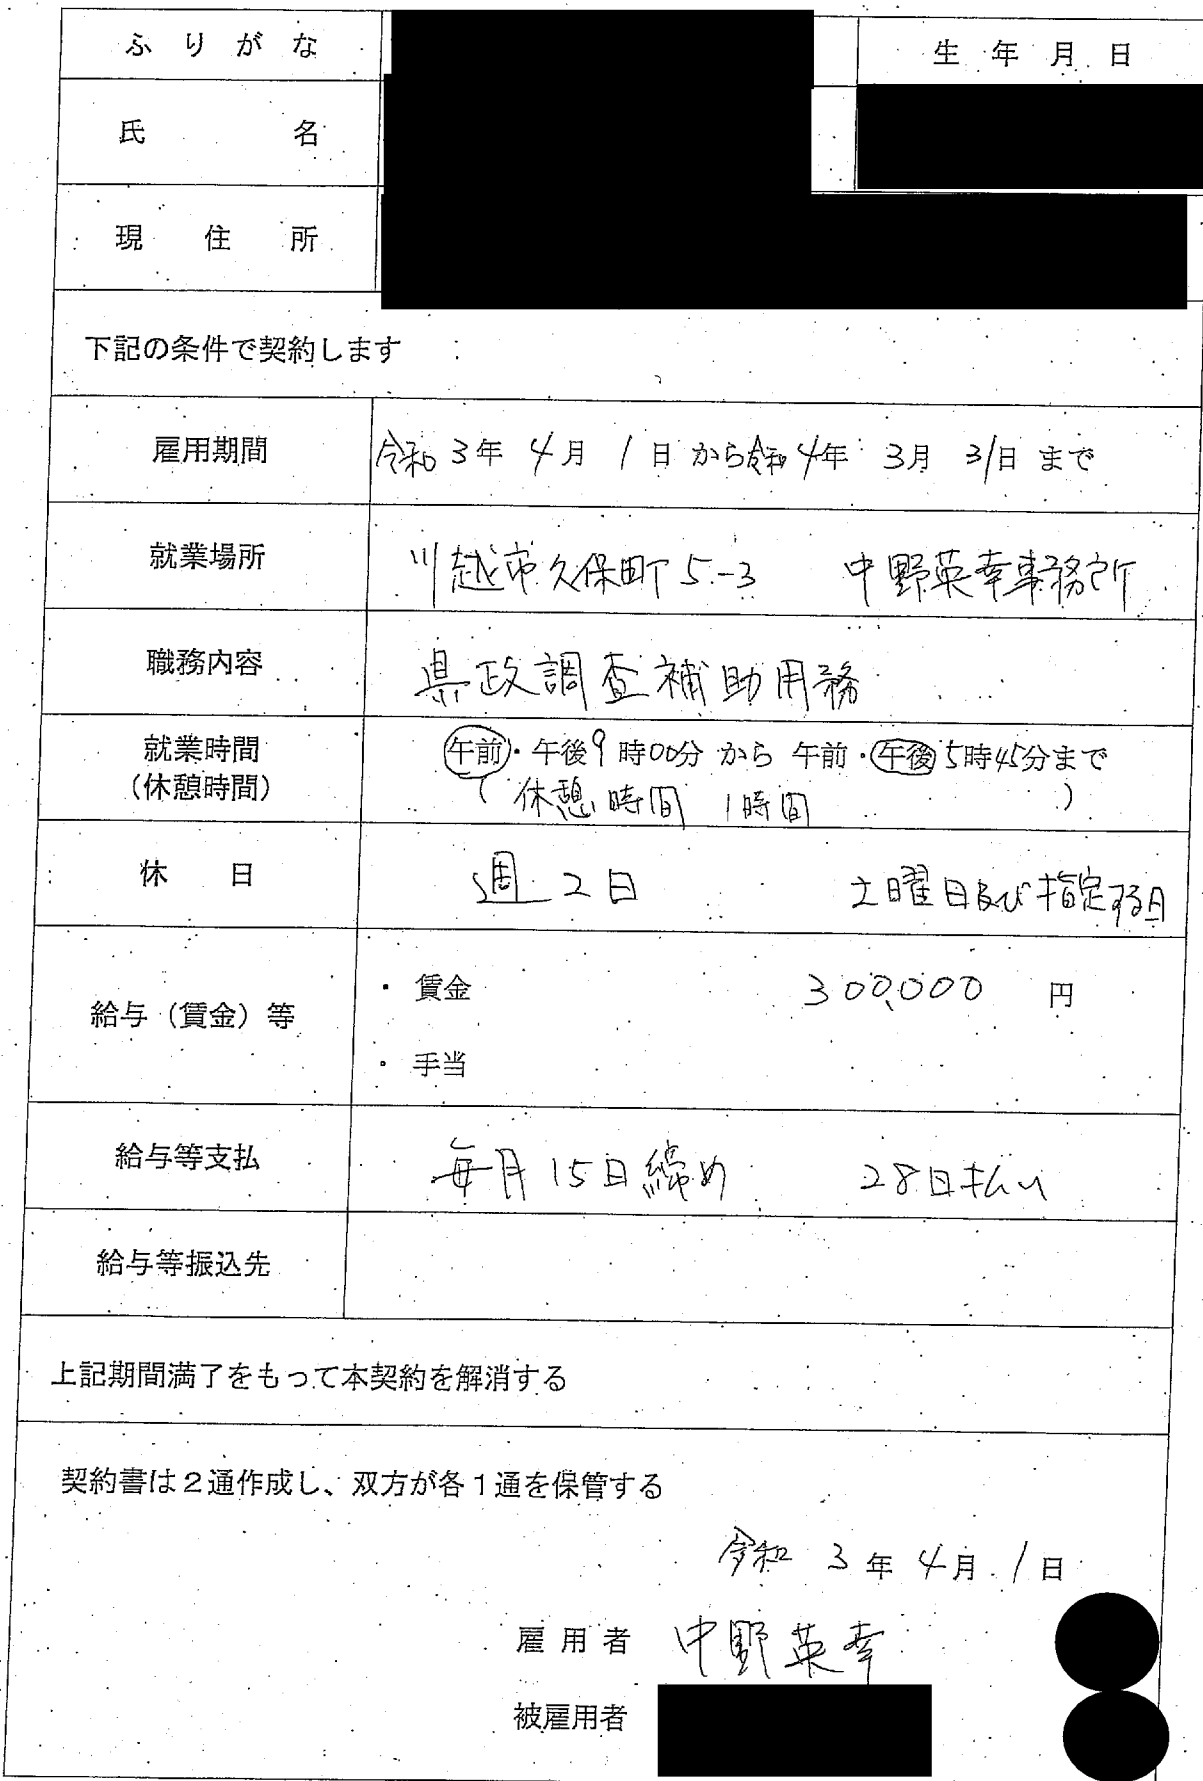 ふりがな
生年月日
氏名
現住所
下記の条件で契約します
雇用期間 令和3年4月1日から令和4年3月31日まで
就業場所 川越市久保町5-3 中野英幸事務所
職務内容 県政調査補助用務
就業時間 午前・午後9時00分から午前・午後5時45分まで
(休憩時間) (休憩時間 1時間)
休日 週2日 土曜日及び指定する日
・賃金 300,000 円
給与(賃金)等
・手当
給与等支払 毎月15日締め 28日払い
給与等振込先
上記期間満了をもって本契約を解消する
契約書は2通作成し、双方が各1通を保管する
令和3年4月1日
雇用者 中野英幸
被雇用者